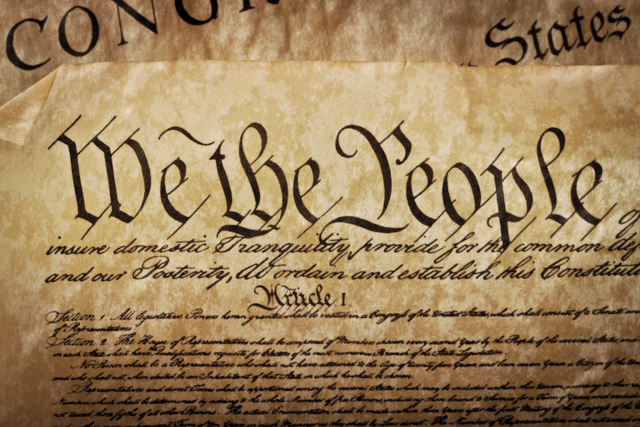 CONGR
States
We the People
insure domestic Tranquility, provide for the common
and our Posterity, do ordain and establish this Constitut
Article I
Section 1. All legislative Powers herein granted shall be vested in a Congress of the United States, which shall consist of a Senate and
of Representatives.
Section 2. The House of Representatives shall be composed of Members chosen every second Year by the People of the several States, and
in each State shall have Qualifications requisite for Electors of the most numerous Branch of the State Legislature.
No Person shall be a Representative who shall not have attained to the Age of twenty five Years, and been seven Years a Citizen of the
and who shall not, when elected, be an Inhabitant of that State in which he shall be chosen.
Representatives and direct Taxes shall be apportioned among the several States which may be included within this Union, according to their